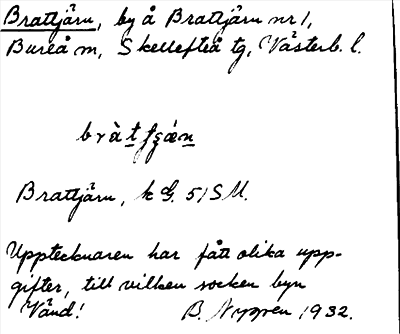 Brattjärn, by å Brattjärn nr 1,
Bureå m, Skellefteå tg, Västerb. l.
Brattjärn, k G. 51 SU.
Upptecknaren har fått olika upp-
gifter, till vilken socken byn
Vänd! B. Nygren 1932.